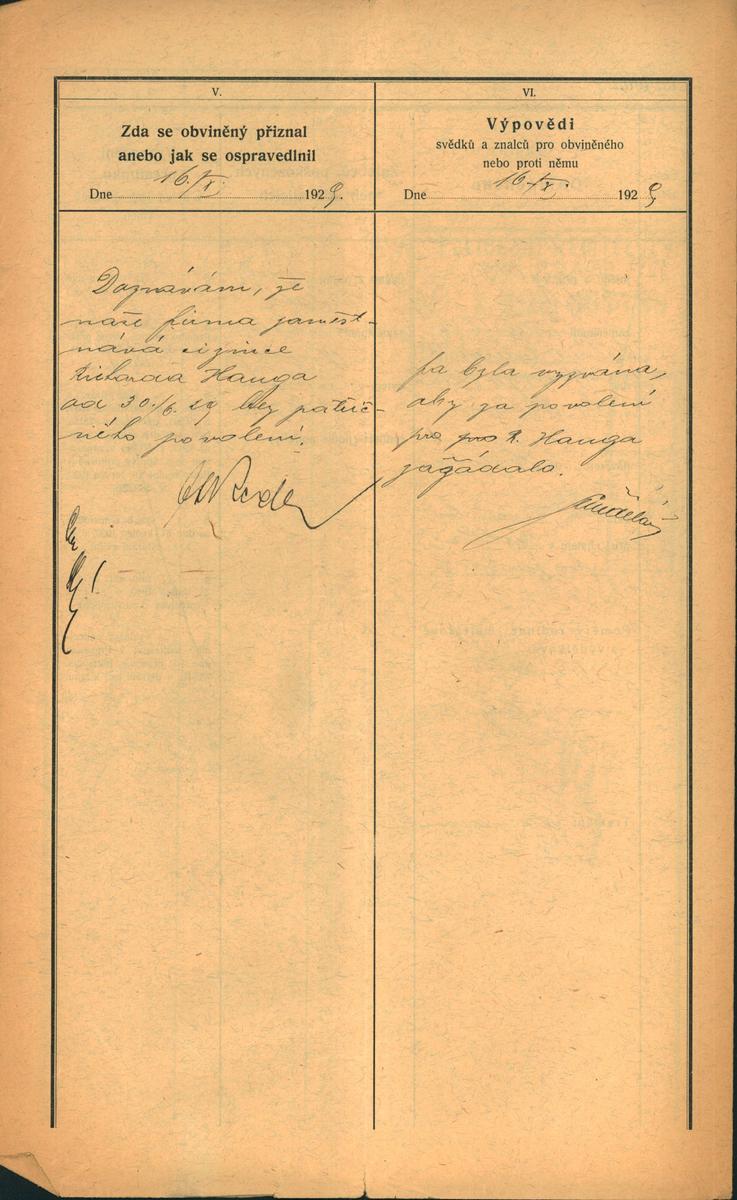 V.
Zda se obviněný přiznal
anebo jak se ospravedlnil
Dne 16./X. 1929.
Doznávám, že
naše firma zaměst-
nává cizince
Richarda Hauga
od 30./6. 29 bez patřič-
ného povolení.
VI.
Výpovědi
svědků a znalců pro obviněného
nebo proti němu
Dne 16./X. 1929
fa byla vyzvána,
aby za povolení
pro pro R. Hauga
zažádala.